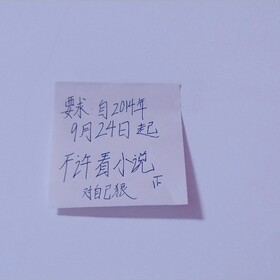 要求 自2014年
9月24日起
不许看小说
对自己狠 正